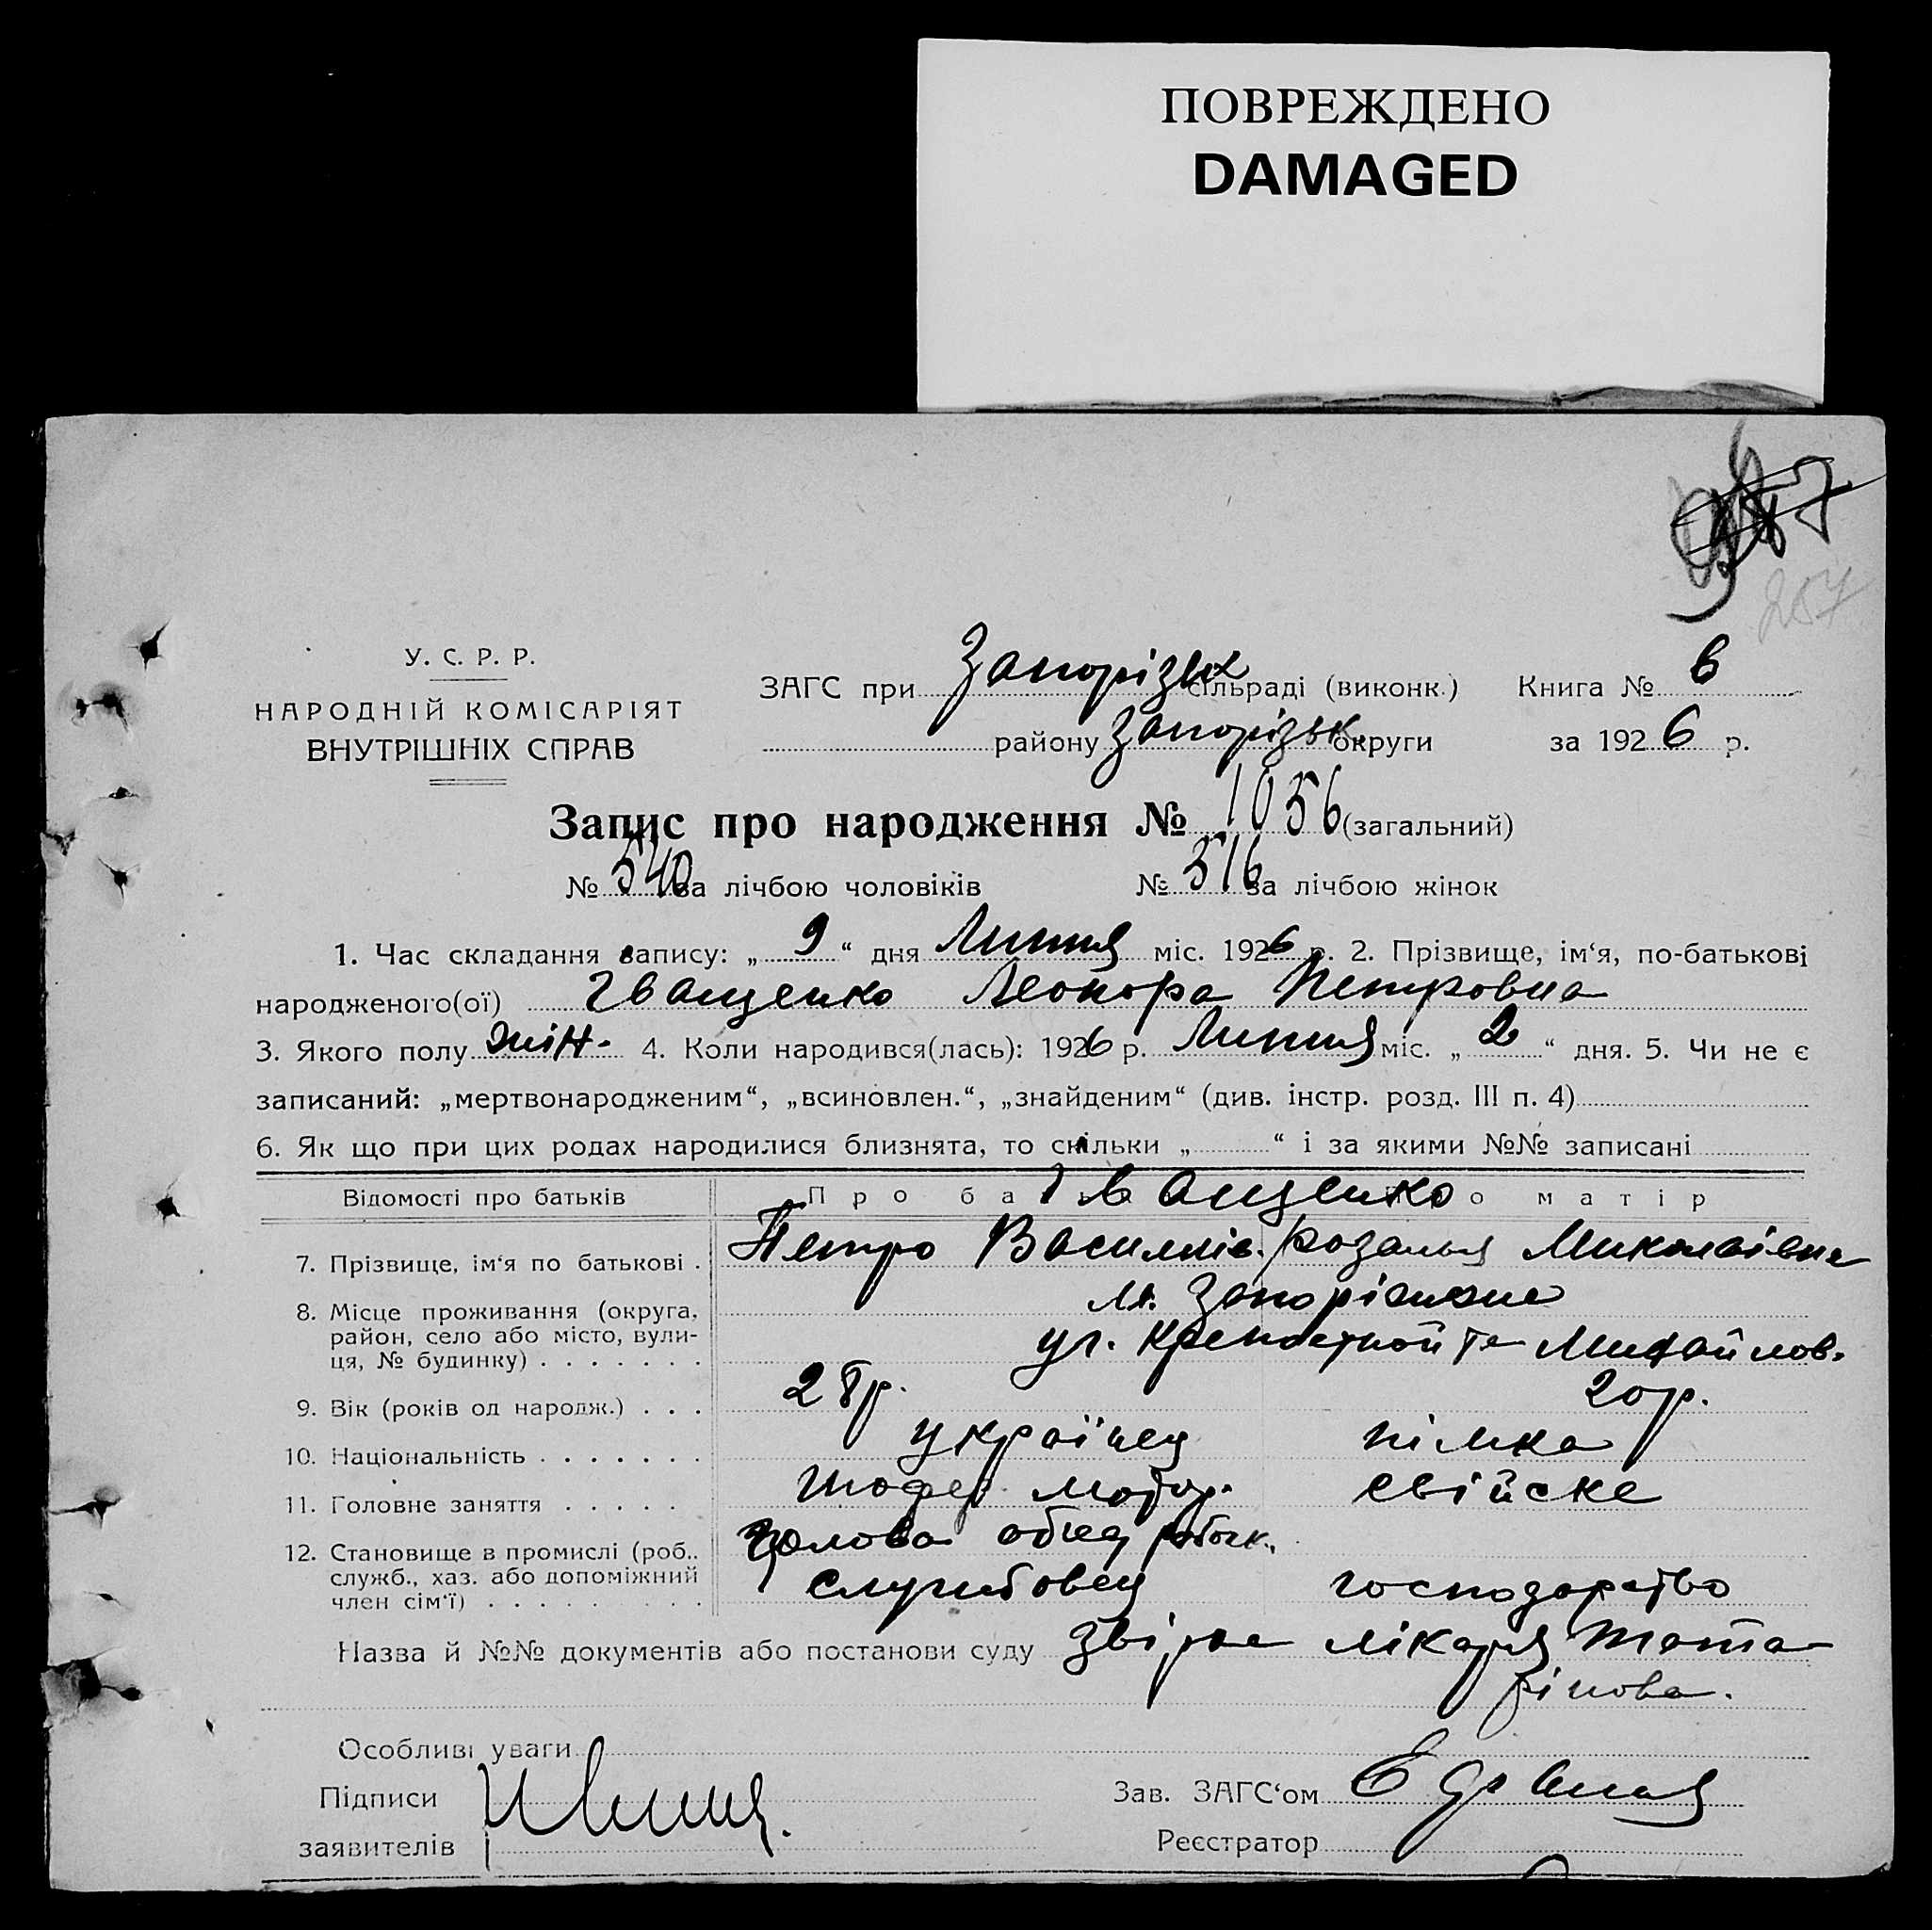 ПОВРЕЖДЕНО
DAMAGED
257
У. С. Р. Р.
НАРОДНІЙ КОМІСАРІЯТ
ВНУТРІШНІХ СПРАВ
ЗАГС при Запорізьк сільраді (виконк.) Книга № 6
району Запорізьк. округи за 1926 р.
Запис про народження № 1056 (загальний)
№ 540 за лічбою чоловіків № 516 за лічбою жінок
1. Час складання запису: „ 9 “ дня Липня міс. 1926 р. 2. Прізвище, ім‘я, по-батькові
народженого(ої) Іващенко Леонора Петровна
3. Якого полу жін. 4. Коли народився(лась): 1926 р. Липня міс. „ 2 “ дня. 5. Чи не є
записаний: „мертвонародженим“, „всиновлен.“, „знайденим“ (див. інстр. розд. III п. 4)
6. Як що при цих родах народилися близнята, то скільки „ “ і за якими №№ записані
Відомості про батьків Про ба Іващенко о матір
7. Прізвище, ім‘я по батькові . Петро Василів. Розалья Миколаівна
8. Місце проживання (округа, м. Запоріжжє
район, село або місто, вули-
ця, № будинку) . . . . . . . уг. Крепостной та Михайлов.
9. Вік (років од народж.) . . . 28 р. 20 р.
10. Національність . . . . . . . українец німка
11. Головне заняття . . . . . шофер мотор. свійске
Голова обєд робочк.
12. Становище в промислі (роб.,
служб., хаз. або допоміжний службовец господарство
член сім‘ї) . . . . . . . . .
Назва й №№ документів або постанови суду лікаря Тата-
рінова.
Особливі уваги
Підписи Зав. ЗАГС‘ом
заявителів Реєстратор